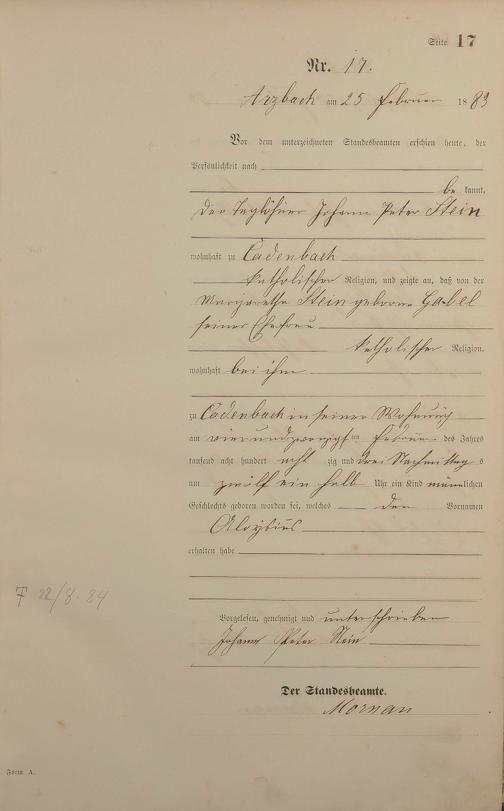 Seite 17
Nr. 17.
Arzbach am 25 Februar 1883
Vor dem unterzeichneten Standesbeamten erschien heute, der
Persönlichkeit nach
be kannt,
der Teglöhner Johann Peter Stein
wohnhaft zu Cadenbach
katholischer Religion, und zeigte an, daß von der
Margarethe Stein geborene Gabel
seiner Ehefrau
katholischer Religion,
wohnhaft bei ihm
zu Cadenbach in seiner Wohnung
am vierundzwanzigsten Februar des Jahres
tausend acht hundert acht zig und drei Nachmittag s
um zwölf ein halb Uhr ein Kind männlichen
Geschlechts geboren worden sei, welches den Vornamen
Aloysius
erhalten habe
† 22/8. 84
Vorgelesen, genehmigt und unterschrieben
Johann Peter Stein
Der Standesbeamte.
Form A.